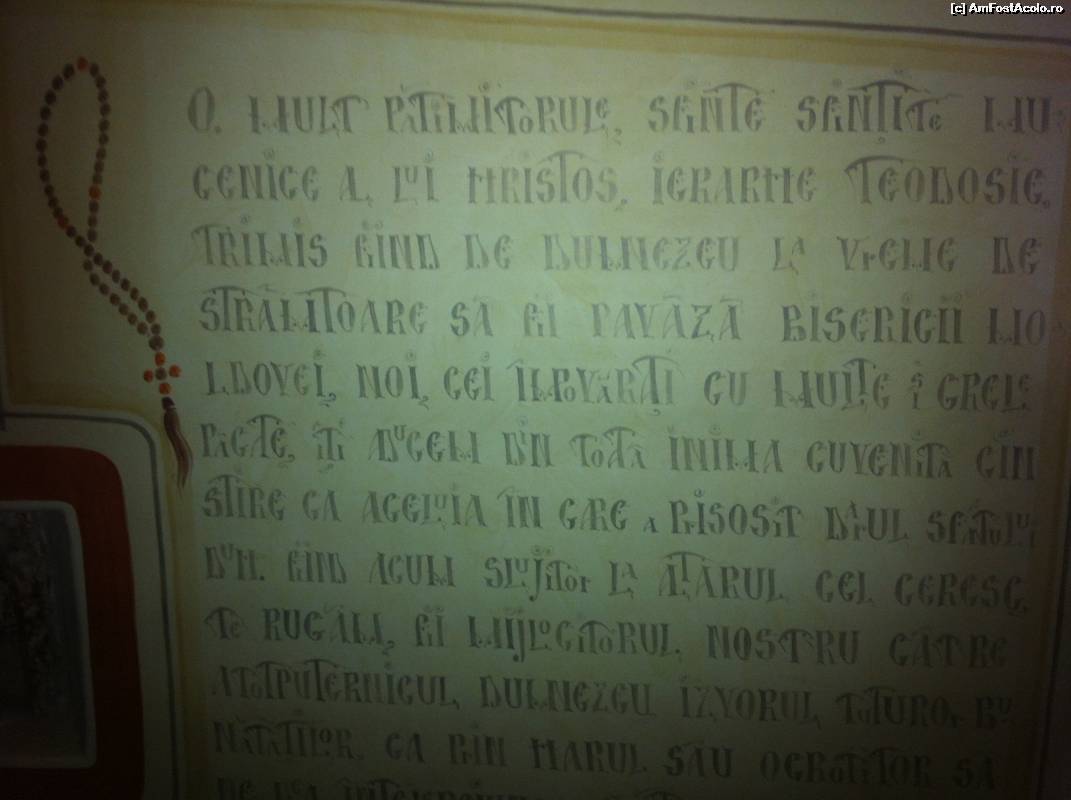 [c] AmFostAcolo.ro
O, MULT PĂTIMITORULE, SFINTE SFINȚITE MU
CENICE AL LUI HRISTOS, IERARHE TEODOSIE,
TRIMIS FIIND DE DUMNEZEU LA VREME DE
STRÂMTOARE SĂ FII PAVĂZĂ BISERICII MO
LDOVEI, NOI, CEI ÎMPOVĂRAȚI CU MULTE ȘI GRELE
PĂCATE, ÎȚI ADUCEM DIN TOATĂ INIMA CUVENITA CIN
STIRE CA ACELUIA ÎN CARE A PRISOSIT DARUL SFÂNTULUI
DUH. FIIND ACUM SLUJITOR LA ALTARUL CEL CERESC,
TE RUGĂM, FII MIJLOCITORUL NOSTRU CĂTRE
ATOTPUTERNICUL DUMNEZEU IZVORUL TUTUROR BU
NĂTĂȚILOR, CA PRIN HARUL SĂU OCROTITOR SĂ